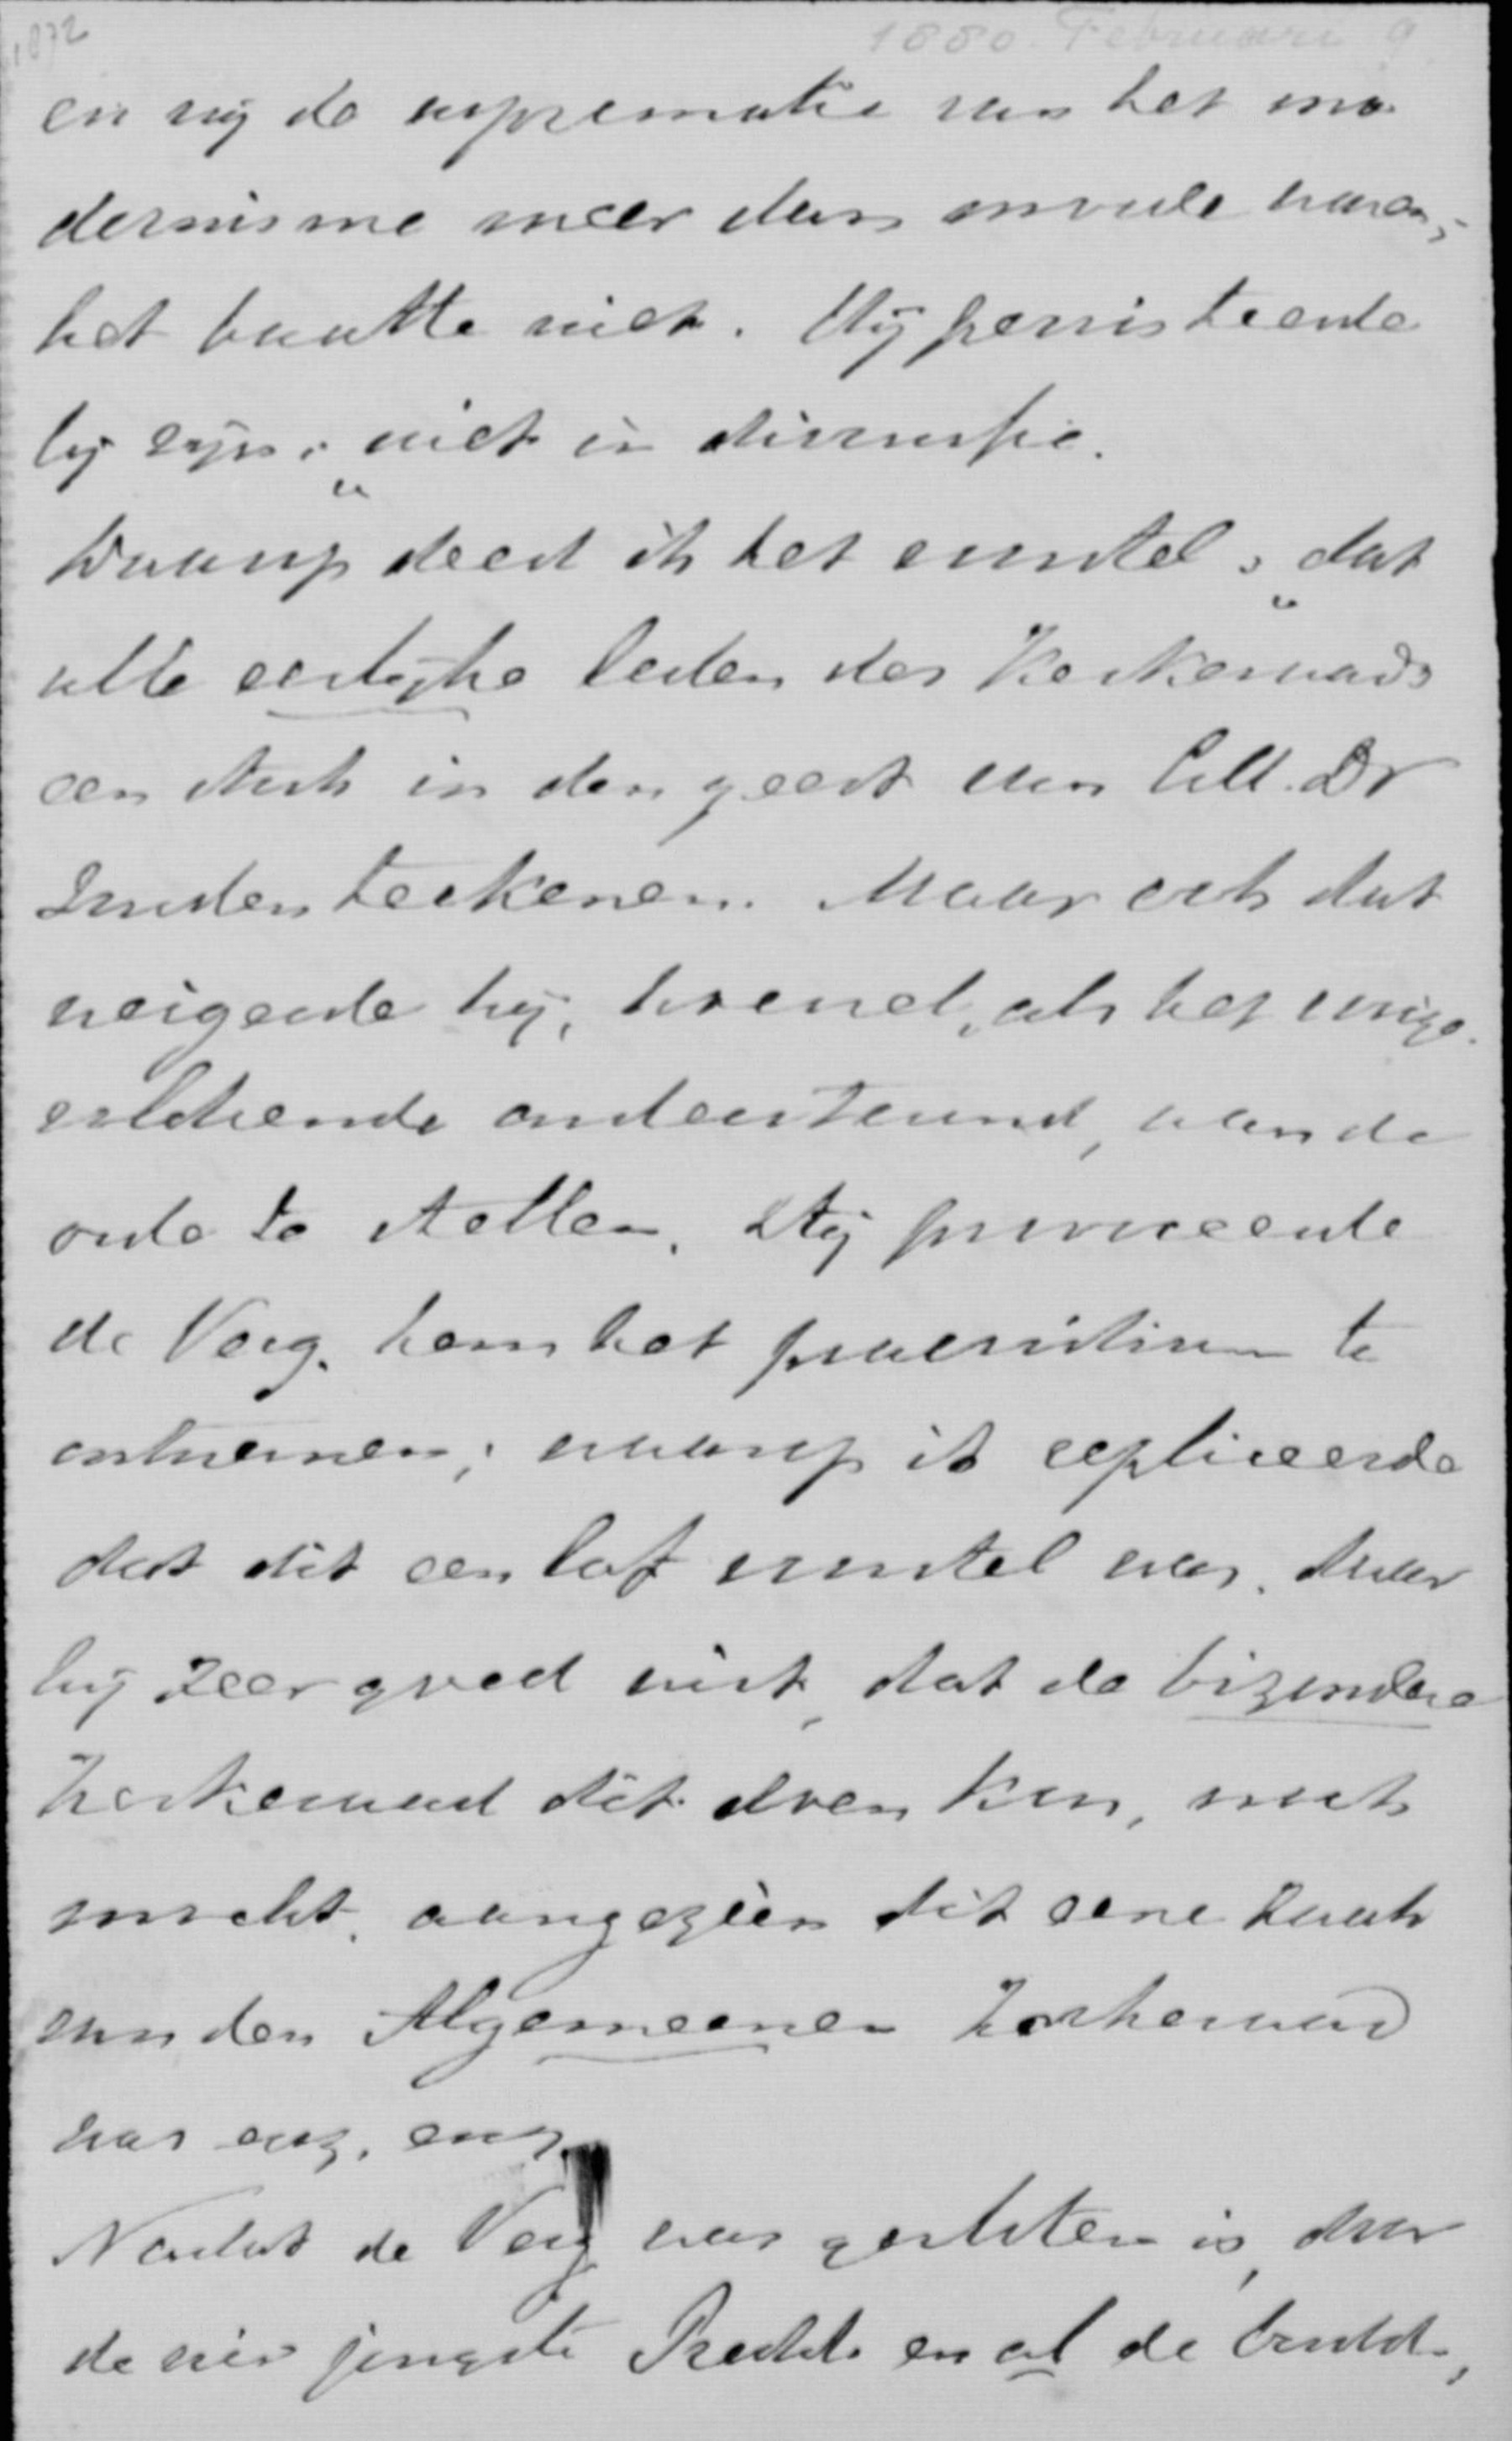 1872
1880 Februari 9
en wij de suprematie van het mo-
dernisme meer dan moede waren,
het baatte niet. Hij persisteerde
bij zijn: „niet in discussie.
Waarop deed ik het voorstel: „dat
alle eerlijke leden des Kerkeraads
een stuk in den geest van Coll. Dr
zouden teekenen. Maar ook dat
weigerde hij, hoewel, als het
ondersteund, aan de
orde te stellen. Hij provoceerde
de Verg. hem het praesidium te
ontnemen; waarop ik repliceerde
dat dit een laf voorstel was, daar
hij zeer goed wist, dat de bizondere
Kerkeraad dit doen kon, noch
mocht, aangezien dit eene zaak
van den Algemeenen Kerkeraad
was enz. enz.
Nadat de Verg was gesloten is, door
de vier jongste Predd. en al de broeders,